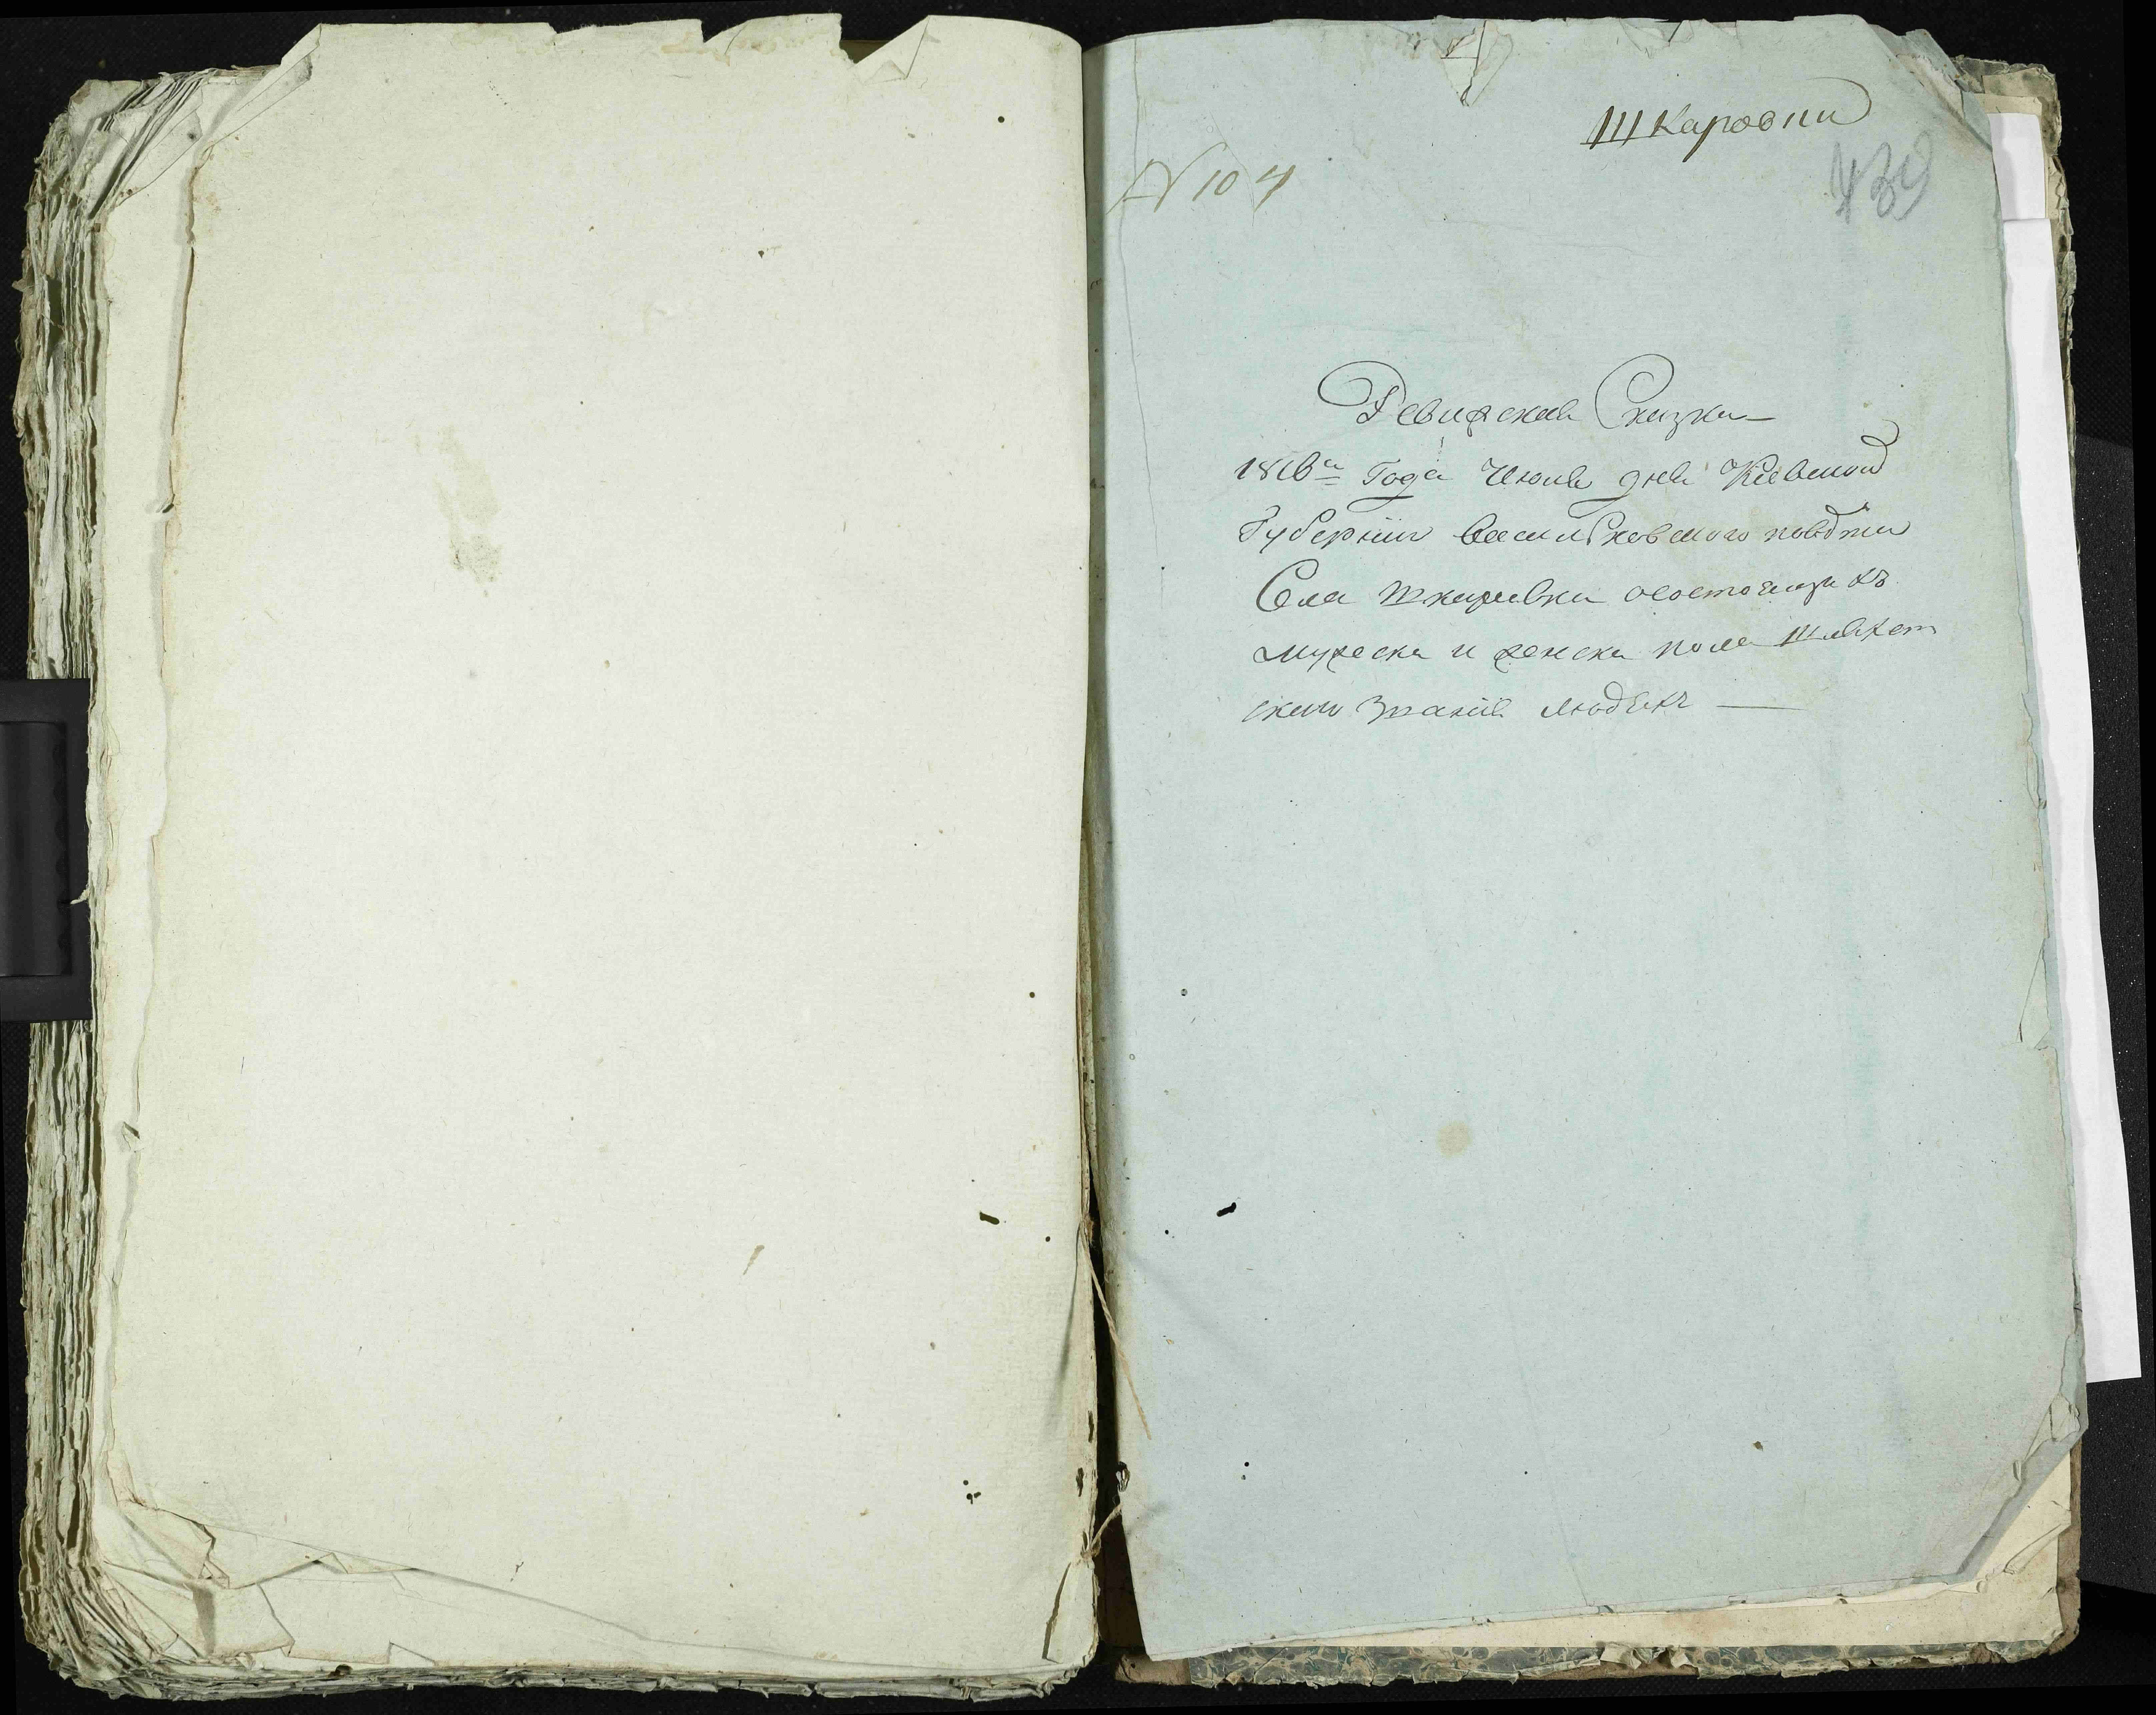 Шкаровки
439
N 104
Ревизская Сказка
1816го Года Июня дня Киевской
Губернии Васильковского повѣта
Села Шкаровки о состоящихъ
мужеска и женска пола Шляхет
скаго Званія людѣхъ